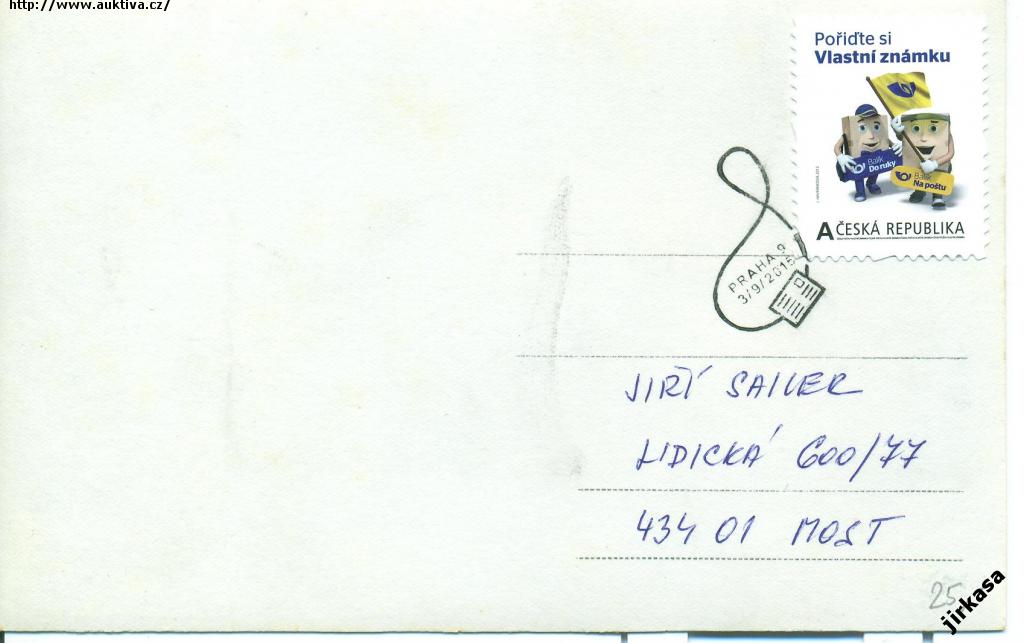 http://www.auktiva.cz/
Pořiďte si
Vlastní známku
Balík
Do ruky
Balík
Na poštu
A ČESKÁ REPUBLIKA
PRAHA 9
3/9/2015
JIŘÍ SAILER
LIDICKÁ 600/77
434 01 MOST
25
jirkasa